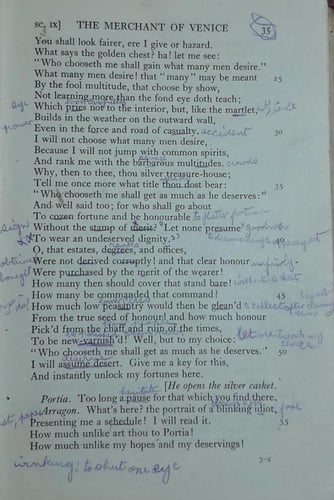 SC. IX] THE MERCHANT OF VENICE 35
You shall look fairer, ere I give or hazard.
What says the golden chest? ha! let me see:
"Who chooseth me shall gain what many men desire."
What many men desire! that "many" may be meant 25
By the fool multitude, that choose by show,
Not learning more than the fond eye doth teach;
eye
Which pries not to the interior, but, like the martlet,
Builds in the weather on the outward wall,
power
Even in the force and road of casualty. accident 30
I will not choose what many men desire,
Because I will not jump with common spirits,
And rank me with the barbarous multitudes. crowds
Why, then to thee, thou silver treasure-house;
Tell me once more what title thou dost bear: 35
"Who chooseth me shall get as much as he deserves:"
And well said too; for who shall go about
To cozen fortune and be honourable
Without the stamp of merit? Let none presume goodness
To wear an undeserved dignity.
O, that estates, degrees, and offices,
Were not derived corruptly! and that clear honour unfairly
bought
Were purchased by the merit of the wearer!
How many then should cover that stand bare!
How many be commanded that command! 45
How much low peasantry would then be glean'd
From the true seed of honour! and how much honour
Pick'd from the chaff and ruin of the times,
To be new-varnish'd! Well, but to my choice: let me make my choice
"Who chooseth me shall get as much as he deserves." 50
I will assume desert. Give me a key for this,
And instantly unlock my fortunes here.
[He opens the silver casket.
hesitate
Portia. Too long a pause for that which you find there.
Arragon. What's here? the portrait of a blinking idiot, fool
Presenting me a schedule! I will read it. 55
How much unlike art thou to Portia!
How much unlike my hopes and my deservings!
3-2
winking: to shut one eye